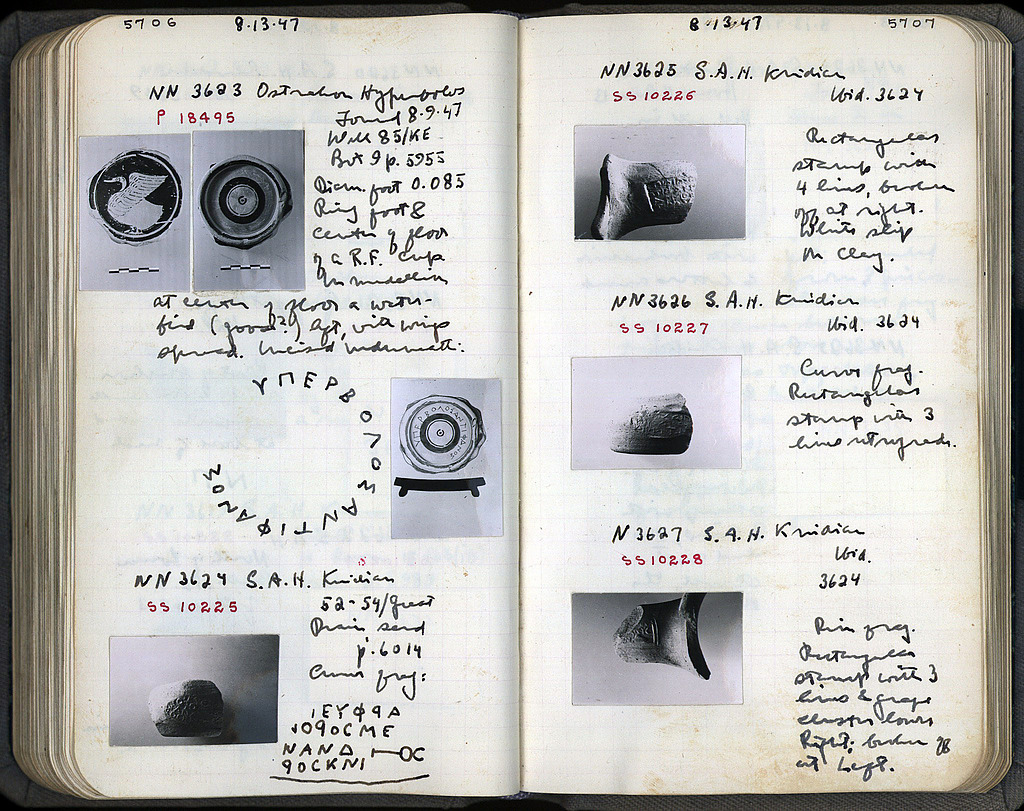 5706 8.13.47
NN 3623 Ostrakon Hyperbolos
P 18495
Found 8.9.47
Well 85/KE
Bot 9 p. 5955
Diam. foot 0.085
Ring foot &
center of floor
of a R.F. cup
In medallion
at center of floor a water-
bird (goose?) left, with wings
spread. Incised underneath:
ΥΠΕΡΒΟΛΟΣΑΝΤΙΦΑΝΟΣ
ΥΠΕΡΒΟΛΟΣΑΝΤΙΦΑΝΟΣ
NN 3624 S.A.H. Knidian
SS 10225
52-54/Great
Drain sand
p. 6014
Curved frag:
ΙΕΥΦϤΑ
ΟϤΟϹΜΕ
ΝΑΝΔ ΟϹ
ϤΟϹΚΝΙ
8.13.47 5707
NN3625 S.A.H. Knidian
SS 10226
Ibid. 3624
Rectangular
stamp with
4 lines, broken
off at right.
White slip
on clay.
NN3626 S.A.H. Knidian
SS 10227
Ibid. 3624
Curved frag.
Rectangular
stamp with 3
lines retrograde.
N 3627 S.A.H. Knidian
SS 10228
Ibid.
3624
Rim frag.
Rectangular
stamp with 3
lines & grape
cluster lower
Right: broken
at Left.